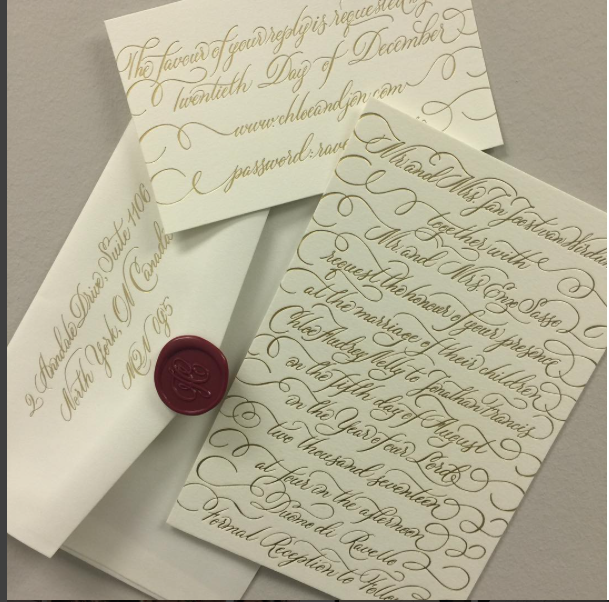 The favour of your reply is requested by
Twentieth Day of December
www.chloeandjon.com
password: rave
2 Anndale Drive, Suite 1106
North York, ON Canada
M2N
Mr. and Mrs. Jan Joost van
together with
Mr. and Mrs. Sasso
request the honour of your presence
at the marriage of their children
Chloe Audrey Nelly to Jonathan Francis
on the fifth day of August
in the Year of our Lord
two thousand seventeen
at four in the afternoon
Duomo di Ravello
Formal Reception to Follow